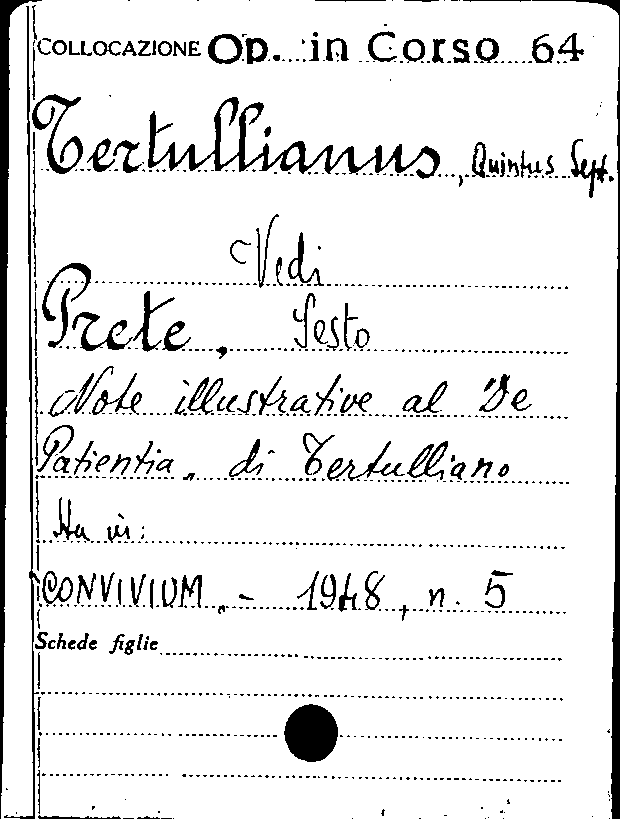 COLLOCAZIONE Op. in Corso 64
Tertullianus, Quintus Sept.
Vedi
Prete, Sesto
Note illustrative al "De
Patientia" di Tertulliano
In:
CONVIVIUM. - 1948, n. 5
Schede figlie